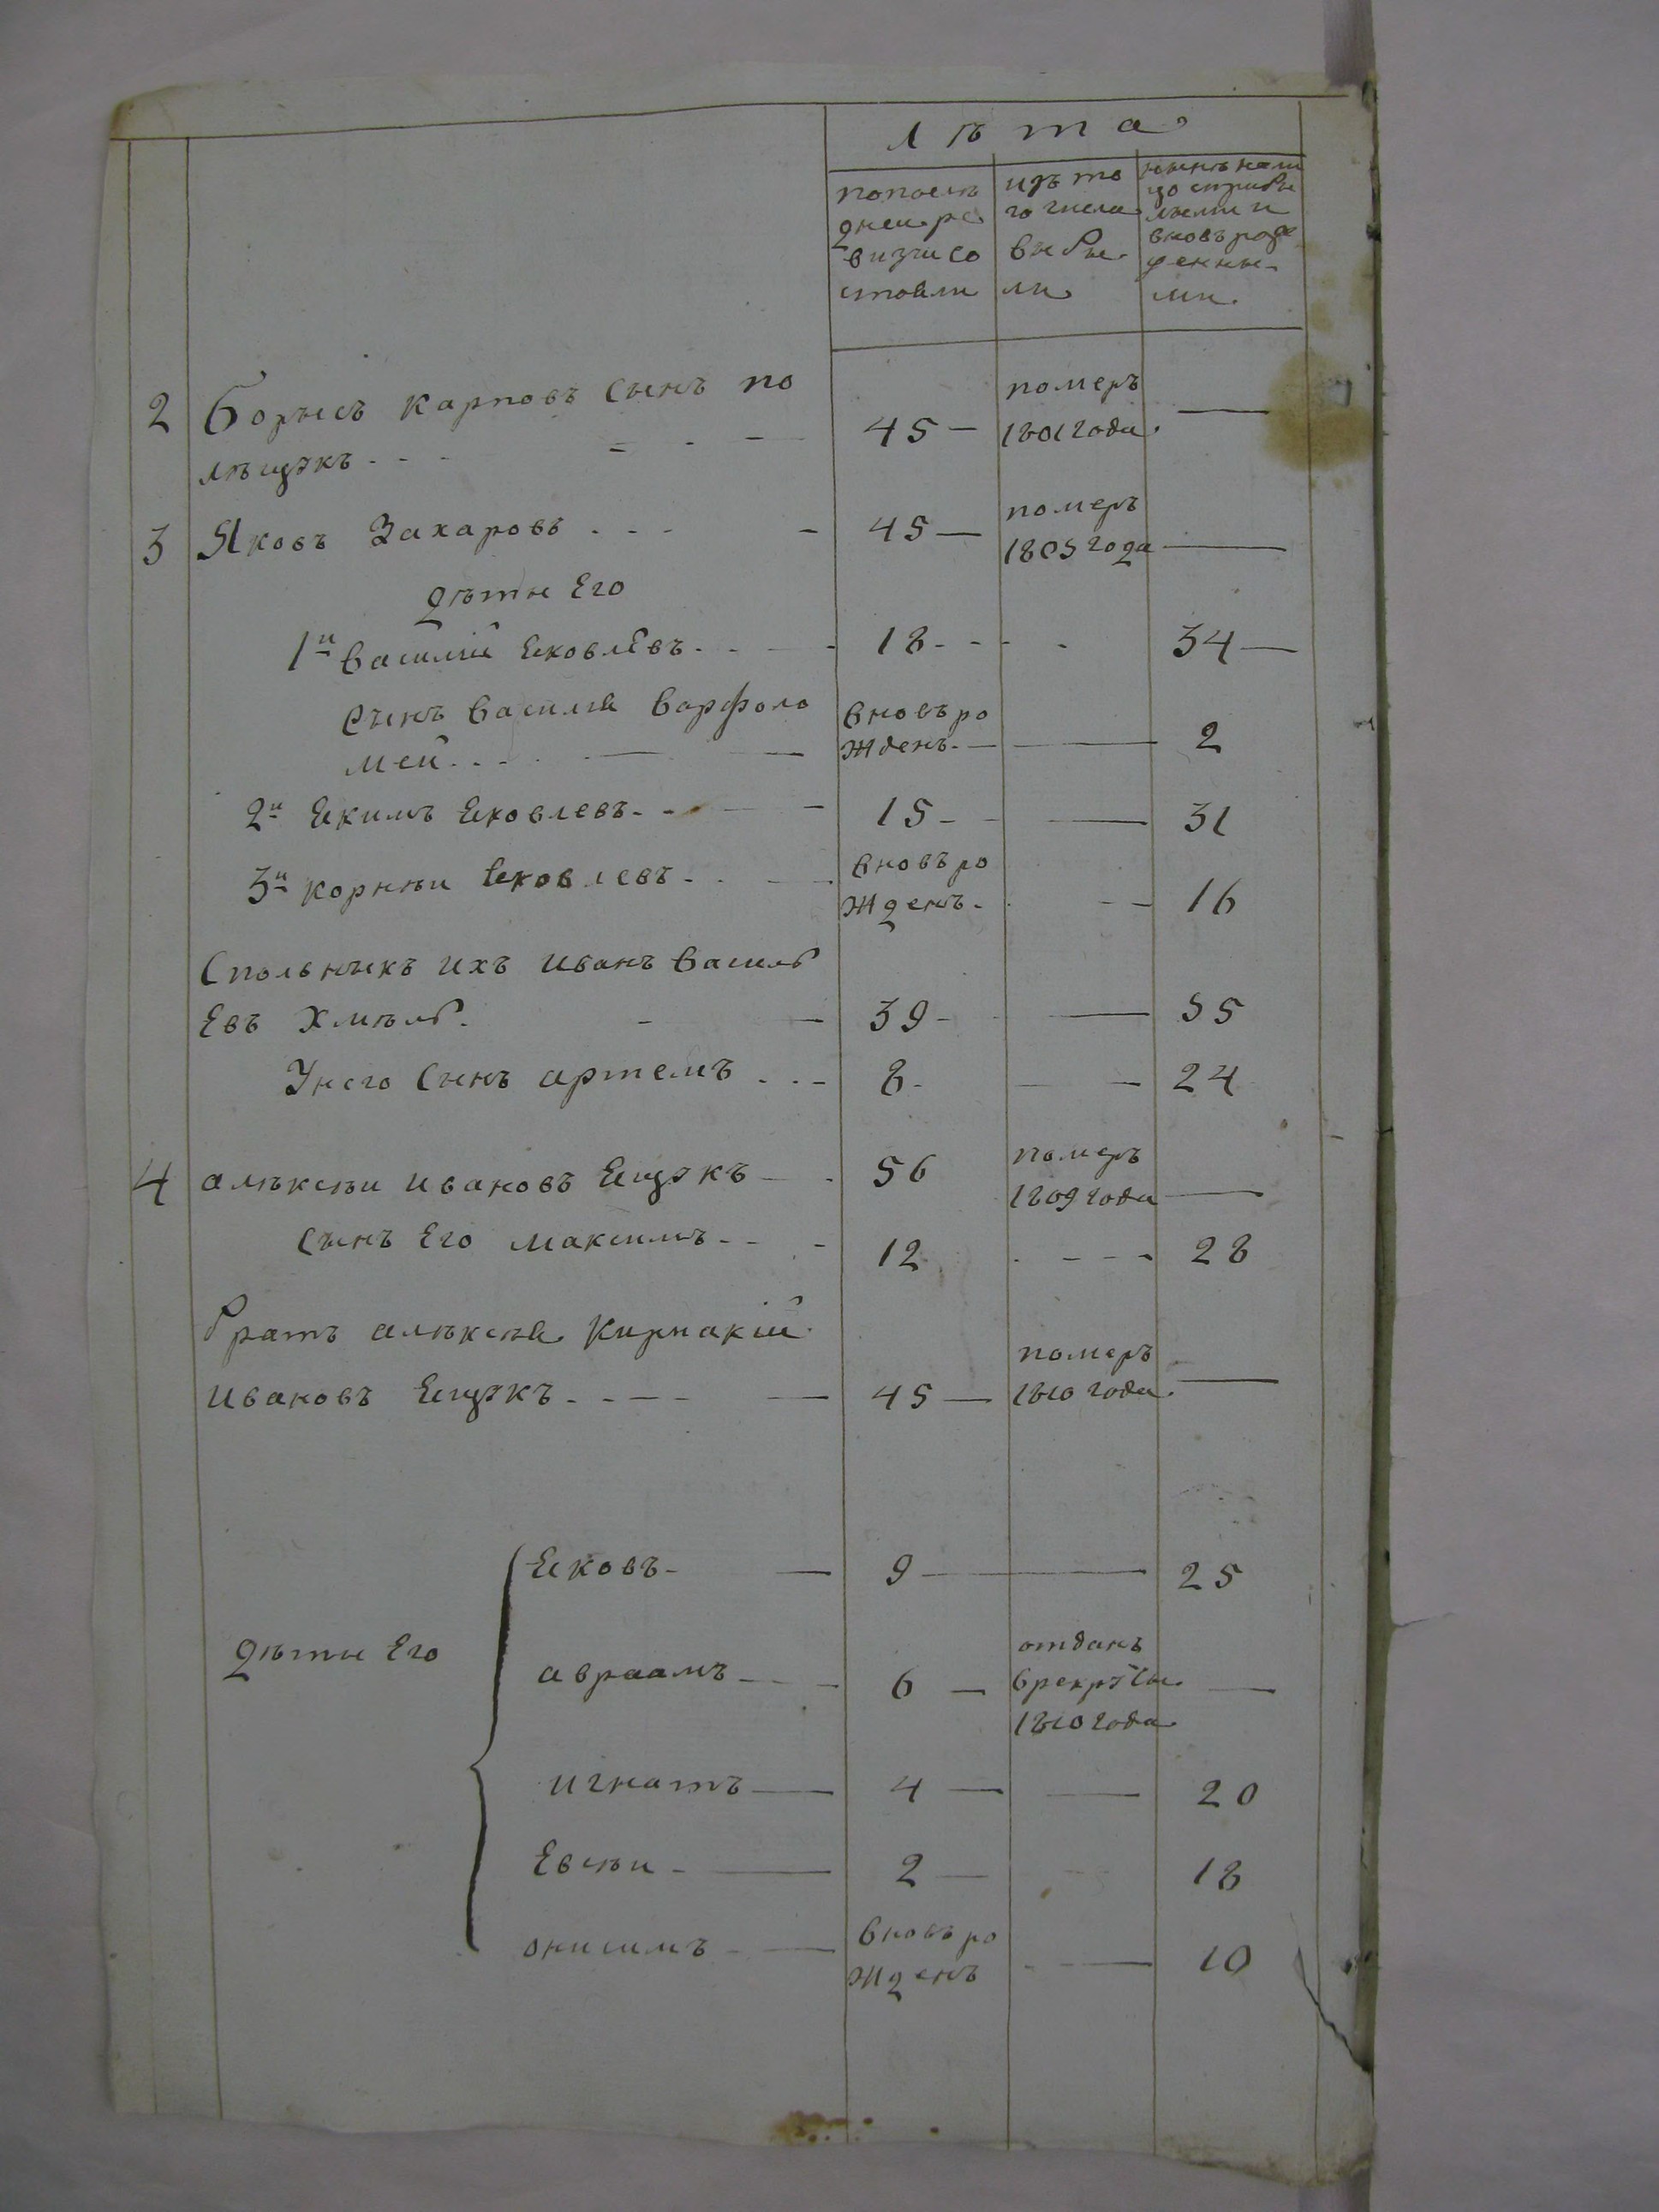 лѣта
попослѣ
дней ре
визии со
стояли
изъ то
го числа
выбы
ли
нынѣ нали
цо сприбы
лыми и
вновь рож
денны
ми
2 Борысъ карповъ сынъ по
лѣщукъ - - - 45 — померъ 1801 года. —
3 Яковъ Захаровъ . - - - 45 — померъ 1805 года —
дѣти Его
1й василий Яковлевъ. - - 18 - - - 34 —
Сынъ василия варфоло
мей. . - - вновъ рожденъ. — — 2
2й Якимъ Яковлевъ. - - 15 - — 31
3й корнѣи Яковлевъ - - вновъ рожденъ. - - 16
Спольныкъ ихъ иванъ василь
Евъ Хмѣль. - — 39 - — 55
Унего сынъ артемъ . . - 8 - — - 24
4 алѣксѣи ивановъ Ящукъ — - 56 померъ 1809 года —
сынъ Его максимъ - - - 12 - - - - 28
братъ алѣксѣя кирнакій
ивановъ Ящукъ - - - — 45 — померъ 1810 года. —
Яковъ - — 9 — — 25
дѣти Его авраамъ - - - 6 — отданъ врекруты 1810 года —
игнатъ — 4 — — 20
Евсѣи - — 2 — 18
онисимъ - — вновъ рожденъ - — 10